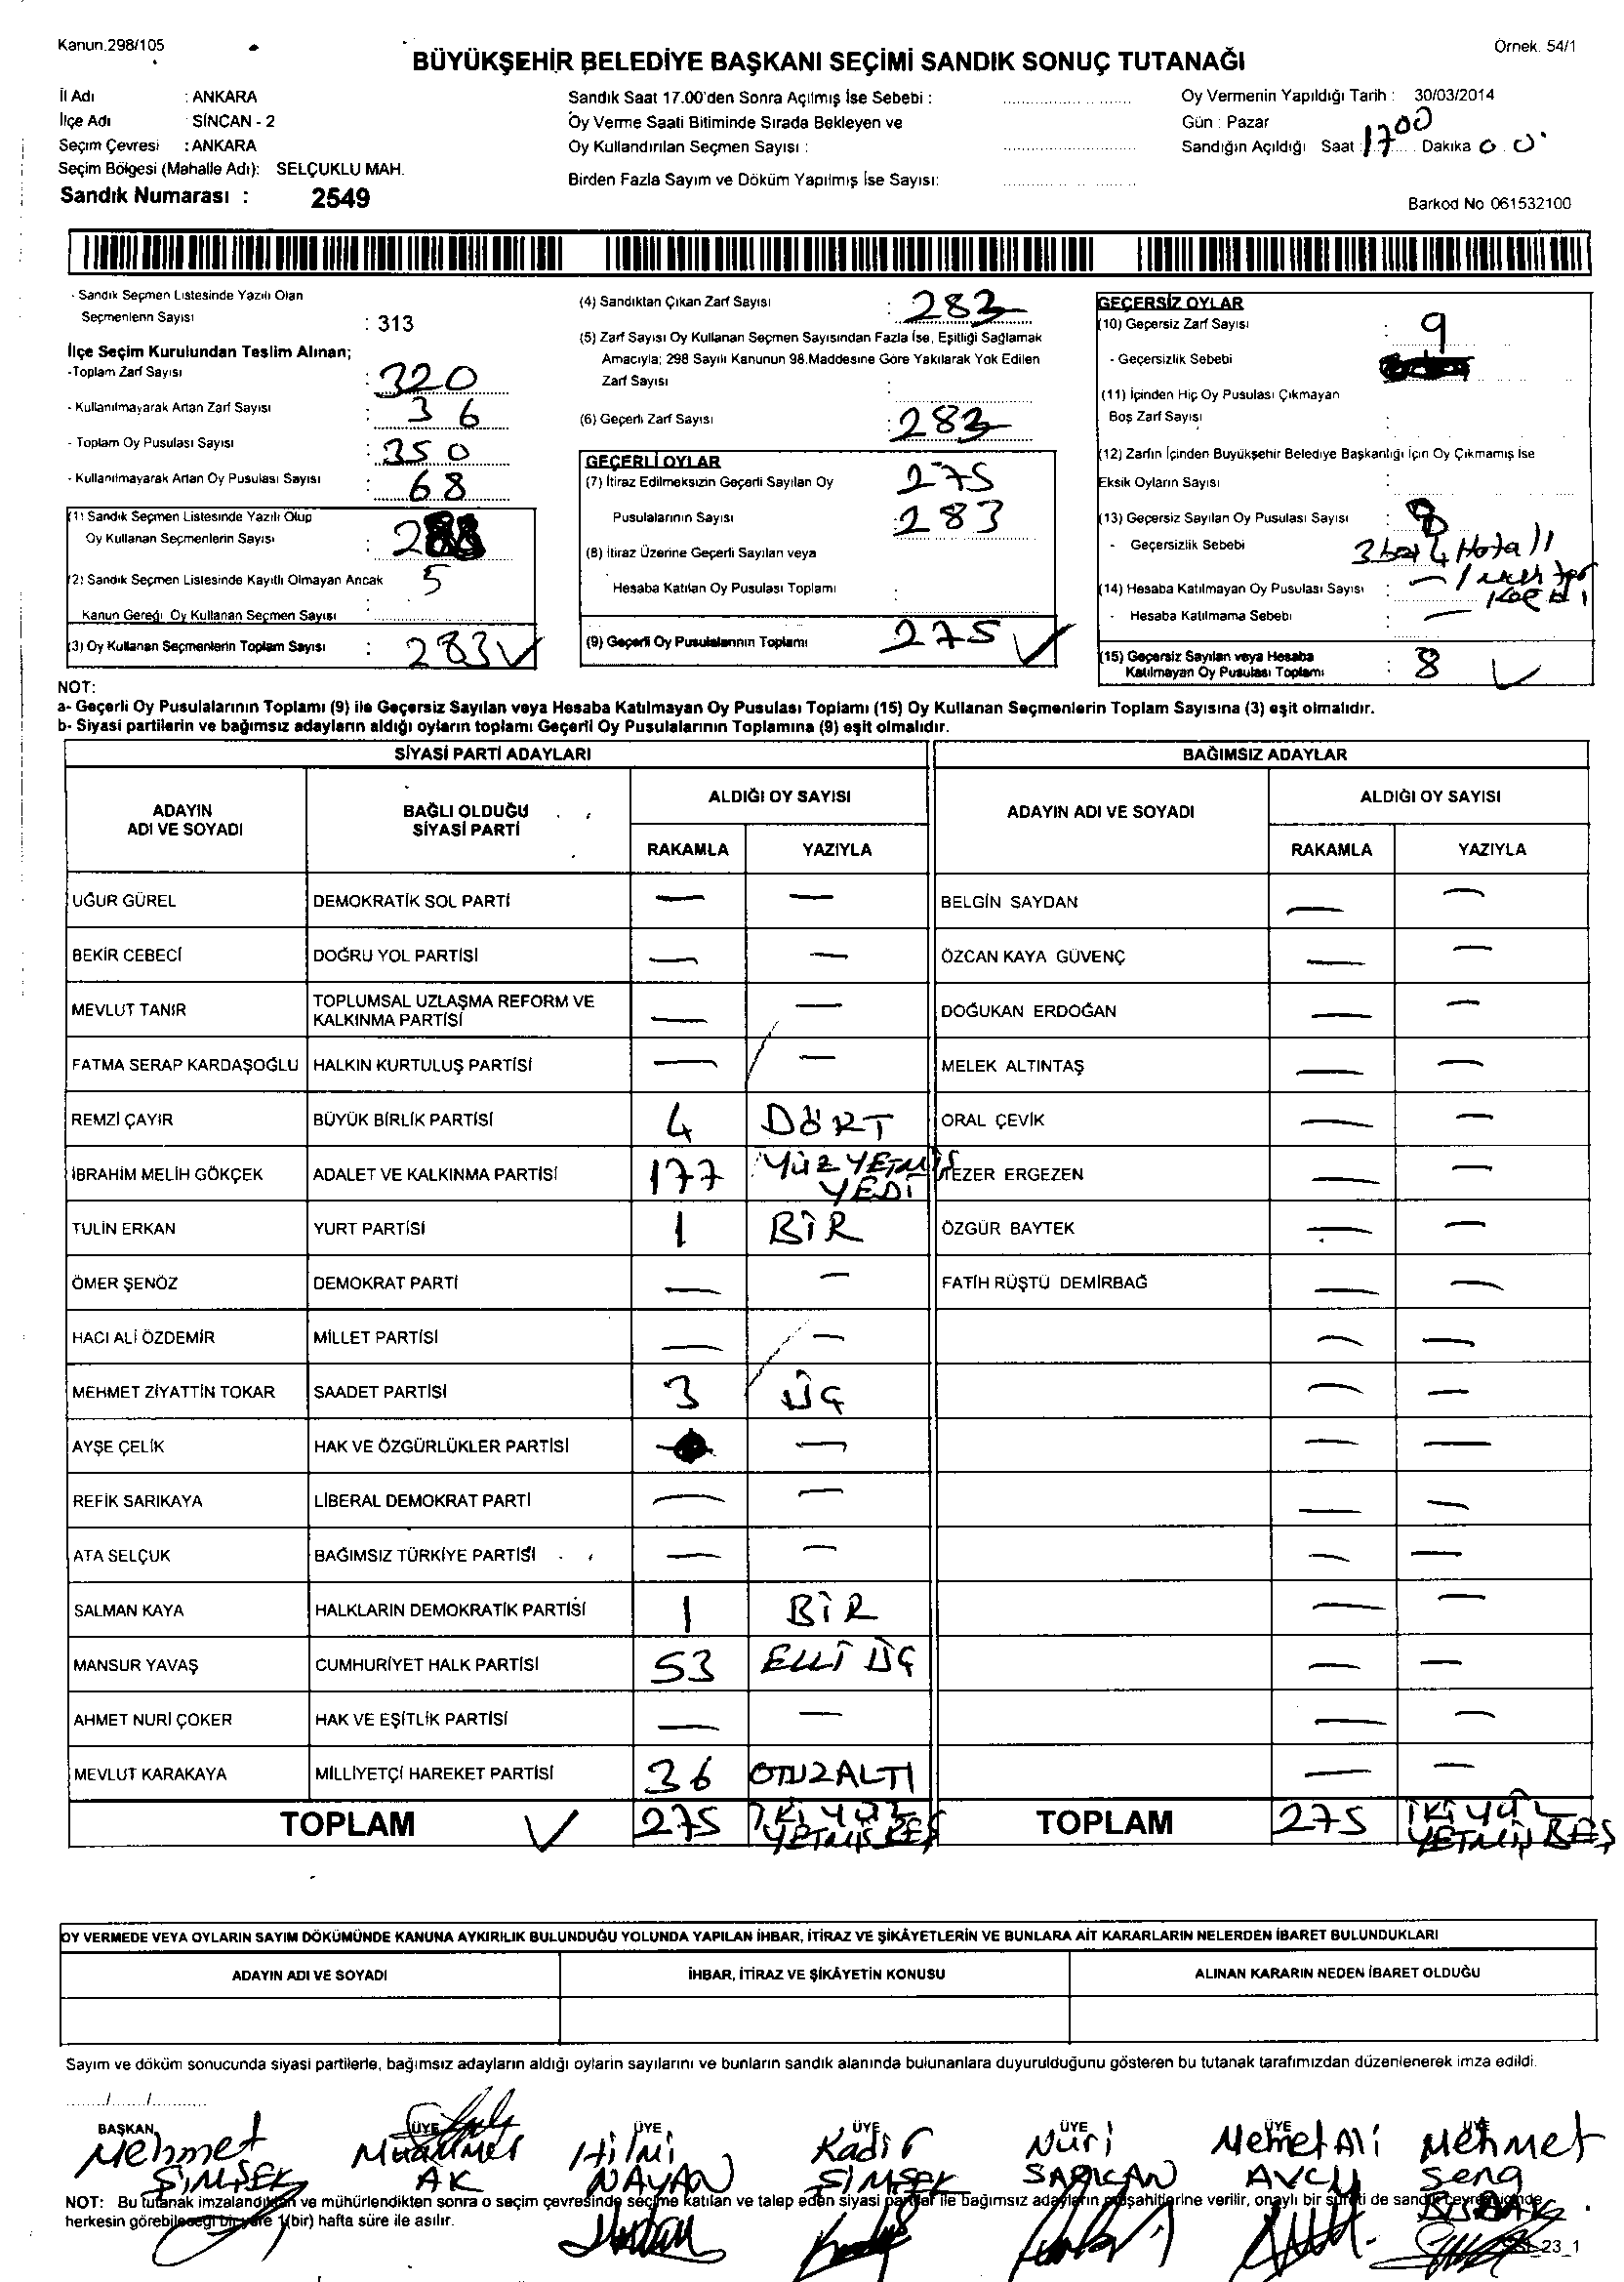 Kanun.298/105
Örnek. 54/1
BÜYÜKŞEHİR BELEDİYE BAŞKANI SEÇİMİ SANDIK SONUÇ TUTANAĞI
İl Adı : ANKARA
İlçe Adı SİNCAN - 2
Seçim Çevresi : ANKARA
Seçim Bölgesi (Mahalle Adı): SELÇUKLU MAH.
Sandık Numarası : 2549
Sandık Saat 17.00'den Sonra Açılmış İse Sebebi :
Oy Verme Saati Bitiminde Sırada Bekleyen ve
Oy Kullandırılan Seçmen Sayısı :
Birden Fazla Sayım ve Döküm Yapılmış İse Sayısı:
Oy Vermenin Yapıldığı Tarih : 30/03/2014
Gün : Pazar
Sandığın Açıldığı Saat : 1700 Dakika 00
Barkod No 061532100
- Sandık Seçmen Listesinde Yazılı Olan
Seçmenlerin Sayısı : 313
İlçe Seçim Kurulundan Teslim Alınan;
-Toplam Zarf Sayısı : 320
- Kullanılmayarak Artan Zarf Sayısı : 36
- Toplam Oy Pusulası Sayısı : 350
- Kullanılmayarak Artan Oy Pusulası Sayısı : 68
(1) Sandık Seçmen Listesinde Yazılı Olup
Oy Kullanan Seçmenlerin Sayısı :
(2) Sandık Seçmen Listesinde Kayıtlı Olmayan Ancak : 5
Kanun Gereği Oy Kullanan Seçmen Sayısı
(3) Oy Kullanan Seçmenlerin Toplam Sayısı : 283 ✓
(4) Sandıktan Çıkan Zarf Sayısı : 283
(5) Zarf Sayısı Oy Kullanan Seçmen Sayısından Fazla İse, Eşitliği Sağlamak
Amacıyla; 298 Sayılı Kanunun 98.Maddesine Göre Yakılarak Yok Edilen
Zarf Sayısı :
(6) Geçerli Zarf Sayısı : 283
GEÇERLİ OYLAR
(7) İtiraz Edilmeksizin Geçerli Sayılan Oy 275
Pusulalarının Sayısı : 283
(8) İtiraz Üzerine Geçerli Sayılan veya
Hesaba Katılan Oy Pusulası Toplamı :
(9) Geçerli Oy Pusulalarının Toplamı 275 ✓
GEÇERSİZ OYLAR
(10) Geçersiz Zarf Sayısı : 9
- Geçersizlik Sebebi :
(11) İçinden Hiç Oy Pusulası Çıkmayan
Boş Zarf Sayısı :
(12) Zarfın İçinden Büyükşehir Belediye Başkanlığı İçin Oy Çıkmamış İse
Eksik Oyların Sayısı :
(13) Geçersiz Sayılan Oy Pusulası Sayısı :
- Geçersizlik Sebebi
(14) Hesaba Katılmayan Oy Pusulası Sayısı : —
- Hesaba Katılmama Sebebi : —
(15) Geçersiz Sayılan veya Hesaba
Katılmayan Oy Pusulası Toplamı : 8 ✓
NOT:
a- Geçerli Oy Pusulalarının Toplamı (9) ile Geçersiz Sayılan veya Hesaba Katılmayan Oy Pusulası Toplamı (15) Oy Kullanan Seçmenlerin Toplam Sayısına (3) eşit olmalıdır.
b- Siyasi partilerin ve bağımsız adayların aldığı oyların toplamı Geçerli Oy Pusulalarının Toplamına (9) eşit olmalıdır.
SİYASİ PARTİ ADAYLARI
BAĞIMSIZ ADAYLAR
ADAYIN ADI VE SOYADI
BAĞLI OLDUĞU SİYASİ PARTİ
ALDIĞI OY SAYISI
RAKAMLA YAZIYLA
ADAYIN ADI VE SOYADI
ALDIĞI OY SAYISI
RAKAMLA YAZIYLA
UĞUR GÜREL DEMOKRATİK SOL PARTİ — — BELGİN SAYDAN — —
BEKİR CEBECİ DOĞRU YOL PARTİSİ — — ÖZCAN KAYA GÜVENÇ — —
MEVLUT TANIR TOPLUMSAL UZLAŞMA REFORM VE KALKINMA PARTİSİ — — DOĞUKAN ERDOĞAN — —
FATMA SERAP KARDAŞOĞLU HALKIN KURTULUŞ PARTİSİ — — MELEK ALTINTAŞ — —
REMZİ ÇAYIR BÜYÜK BİRLİK PARTİSİ 4 DÖRT ORAL ÇEVİK — —
İBRAHİM MELİH GÖKÇEK ADALET VE KALKINMA PARTİSİ 177 YÜZ YETMİŞ YEDİ TEZER ERGEZEN — —
TULİN ERKAN YURT PARTİSİ 1 BİR ÖZGÜR BAYTEK — —
ÖMER ŞENÖZ DEMOKRAT PARTİ — — FATİH RÜŞTÜ DEMİRBAĞ — —
HACI ALİ ÖZDEMİR MİLLET PARTİSİ — — — —
MEHMET ZİYATTİN TOKAR SAADET PARTİSİ 3 ÜÇ — —
AYŞE ÇELİK HAK VE ÖZGÜRLÜKLER PARTİSİ — — — —
REFİK SARIKAYA LİBERAL DEMOKRAT PARTİ — — — —
ATA SELÇUK BAĞIMSIZ TÜRKİYE PARTİSİ — — — —
SALMAN KAYA HALKLARIN DEMOKRATİK PARTİSİ 1 BİR — —
MANSUR YAVAŞ CUMHURİYET HALK PARTİSİ 53 ELLİ ÜÇ — —
AHMET NURİ ÇOKER HAK VE EŞİTLİK PARTİSİ — — — —
MEVLUT KARAKAYA MİLLİYETÇİ HAREKET PARTİSİ 36 OTUZALTI — —
TOPLAM ✓ 275 İKİ YÜZ YETMİŞ BEŞ TOPLAM 275 İKİ YÜZ YETMİŞ BEŞ
OY VERMEDE VEYA OYLARIN SAYIM DÖKÜMÜNDE KANUNA AYKIRILIK BULUNDUĞU YOLUNDA YAPILAN İHBAR, İTİRAZ VE ŞİKÂYETLERİN VE BUNLARA AİT KARARLARIN NELERDEN İBARET BULUNDUKLARI
ADAYIN ADI VE SOYADI İHBAR, İTİRAZ VE ŞİKÂYETİN KONUSU ALINAN KARARIN NEDEN İBARET OLDUĞU
Sayım ve döküm sonucunda siyasi partilerle, bağımsız adayların aldığı oyların sayılarını ve bunların sandık alanında bulunanlara duyurulduğunu gösteren bu tutanak tarafımızdan düzenlenerek imza edildi.
....../....../............
BAŞKAN ÜYE ÜYE ÜYE ÜYE ÜYE ÜYE
Mehmet Muammer Hilmi Kadir Nuri Mehmet Ali Mehmet
ŞİMŞEK AK NAYAN ŞİMŞEK SARICAN AVCU
NOT: Bu tutanak imzalandıktan ve mühürlendikten sonra o seçim çevresinde seçime katılan ve talep eden siyasi partiler ile bağımsız adayların müşahitlerine verilir, onaylı bir sureti de sandık çevresi içinde
herkesin görebileceği bir yere 1(bir) hafta süre ile asılır.
23_1